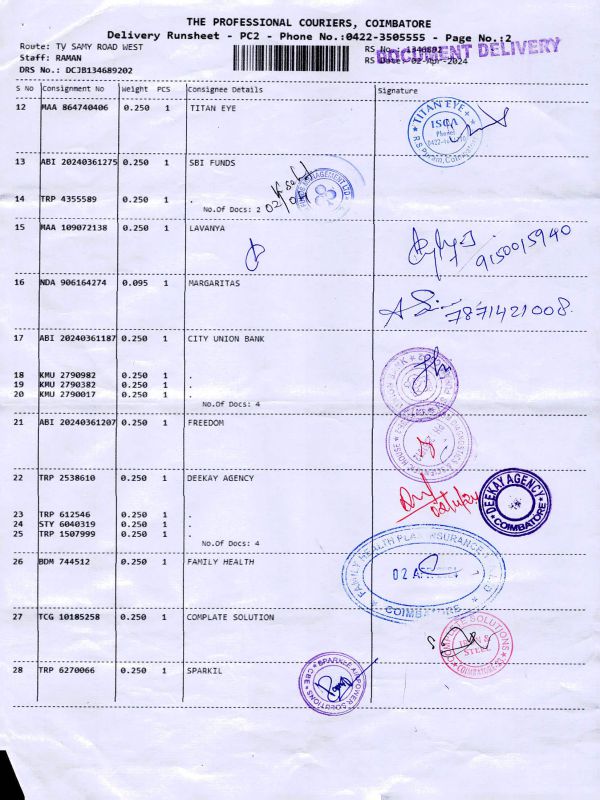 THE PROFESSIONAL COURIERS, COIMBATORE
Delivery Runsheet - PC2 - Phone No.:0422-3505555 - Page No.:2
Route: TV SAMY ROAD WEST
RS No.: 1346892
DOCUMENT DELIVERY
Staff: RAMAN
RS Date: 02-Apr-2024
DRS No.: DCJB134689202
S No Consignment No Weight PCS Consignee Details Signature
12 MAA 864740406 0.250 1 TITAN EYE
TITAN EYE+
ISCA
Phone:
R S Puram, Coimbatore
13 ABI 20240361275 0.250 1 SBI FUNDS
14 TRP 4355589 0.250 1 .
No.Of Docs: 2
15 MAA 109072138 0.250 1 LAVANYA
9150015940
16 NDA 906164274 0.095 1 MARGARITAS
7871421008
17 ABI 20240361187 0.250 1 CITY UNION BANK
18 KMU 2790982 0.250 1 .
19 KMU 2790382 0.250 1 .
20 KMU 2790017 0.250 1 .
No.Of Docs: 4
21 ABI 20240361207 0.250 1 FREEDOM
22 TRP 2538610 0.250 1 DEEKAY AGENCY
DEEKAY AGENCY
COIMBATORE
23 TRP 612546 0.250 1 .
24 STY 6040319 0.250 1 .
25 TRP 1507999 0.250 1 .
No.Of Docs: 4
26 BDM 744512 0.250 1 FAMILY HEALTH
FAMILY HEALTH PLAN INSURANCE
02 APR
COIMBATORE
27 TCG 10185258 0.250 1 COMPLATE SOLUTION
COMPLETE SOLUTIONS
STEEL
COIMBATORE
28 TRP 6270066 0.250 1 SPARKIL
SPARKLE POWER SOLUTIONS
CBE